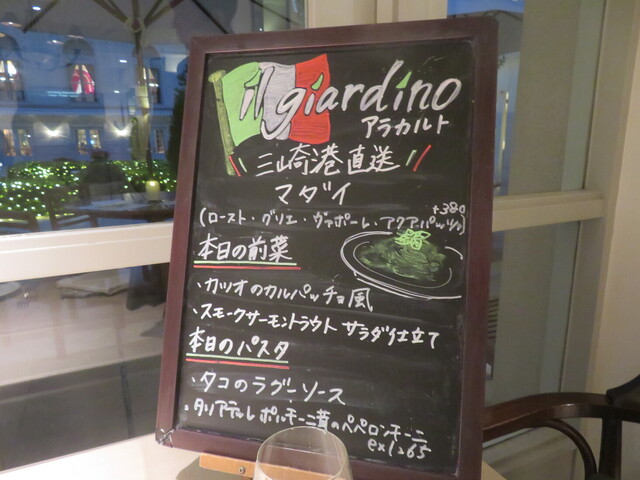 il giardino
アラカルト
三崎港直送
マダイ
+380
(ロースト・グリエ・ヴァポーレ・アクアパッツァ)
本日の前菜
・カツオのカルパッチョ風
・スモークサーモントラウト サラダ仕立て
本日のパスタ
・タコのラグーソース
・タリアテッレ ポルチーニ茸のペペロンチーニ